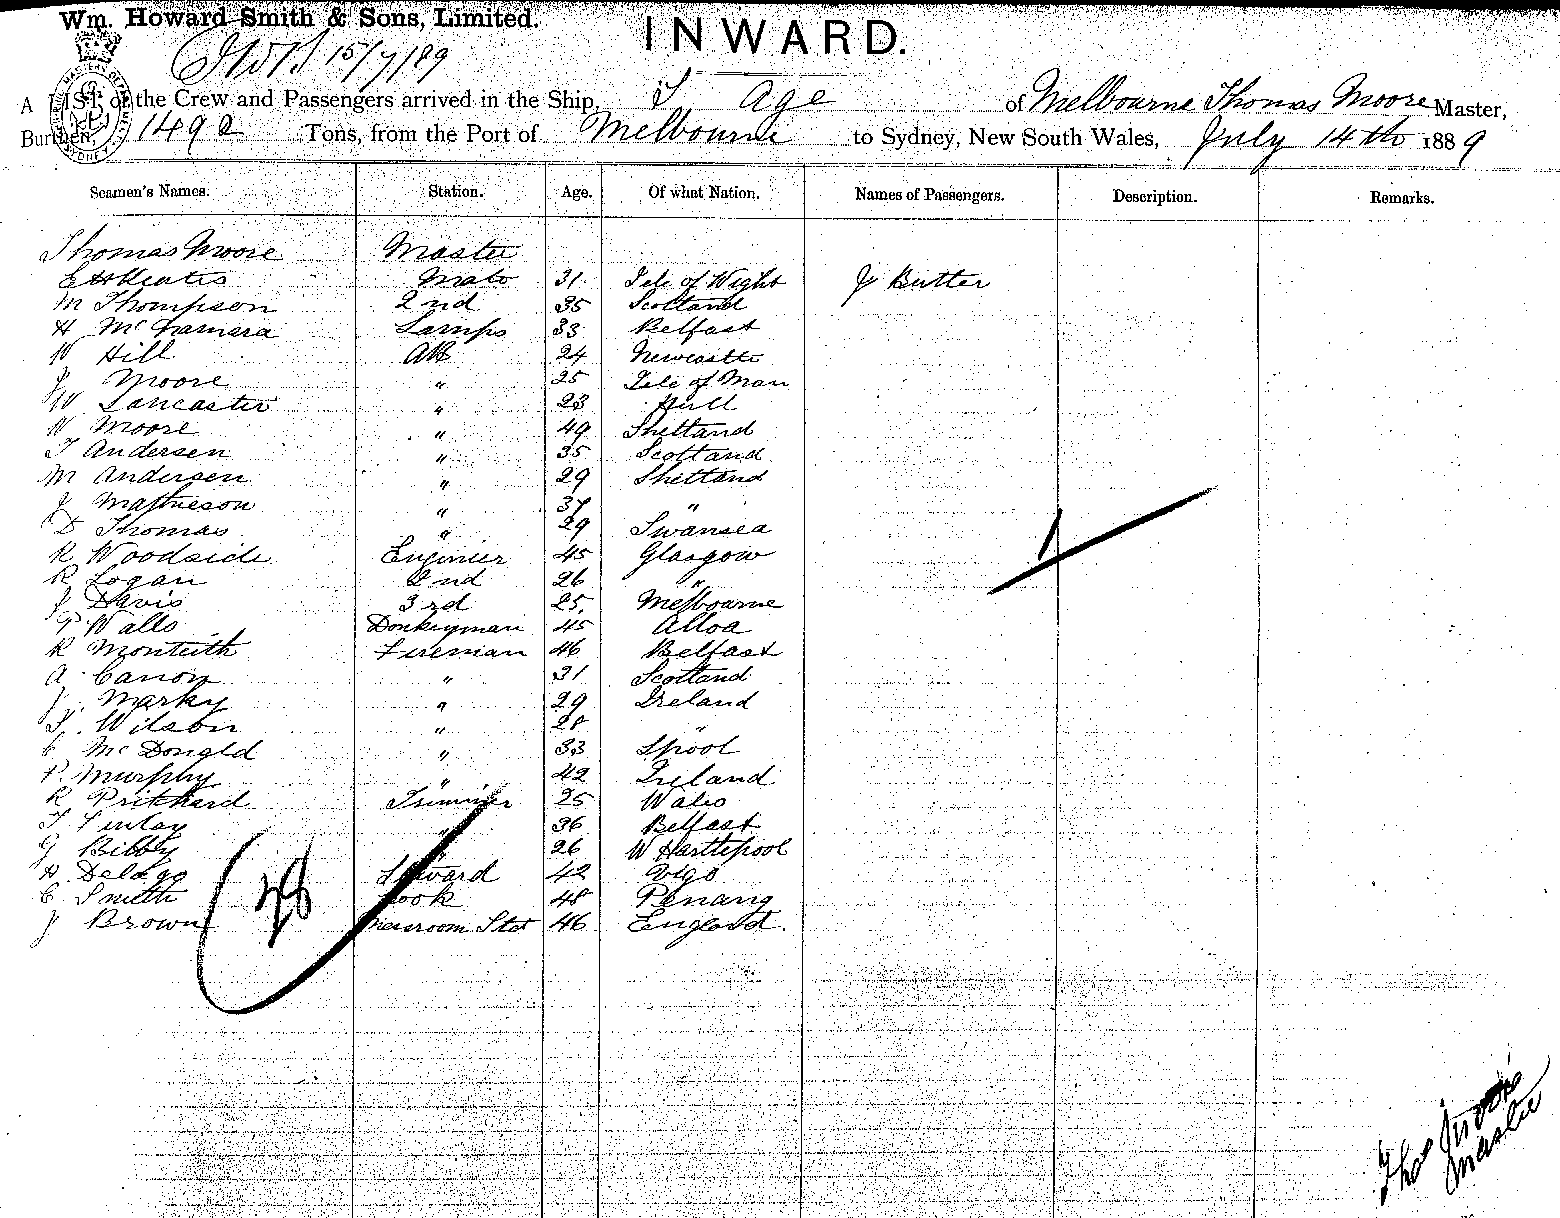 Wm. Howard Smith & Sons, Limited.
INWARD.
15/7/89
A LIST of the Crew and Passengers arrived in the Ship, Age of Melbourne Thomas Moore Master,
Burthen, 1492 Tons, from the Port of Melbourne to Sydney, New South Wales, July 14th 1889
Seamen's Names. Station. Age. Of what Nation. Names of Passengers. Description. Remarks.
Thomas Moore Master
Mate 31 Isle of Wight J Butter
M Thompson 2nd 35 Scotland
H McNamara Lamps 33 Belfast
W Hill AB 24 Newcastle
J Moore " 25 Isle of Man
W Lancaster " 23 Hull
W Moore " 49 Shetland
T Andersen " 35 Scotland
M Andersen " 29 Shetland
J Mathieson " 37 "
D Thomas " 29 Swansea
R Woodside Engineer 45 Glasgow
R Logan 2nd 26 "
J Davis 3rd 25 Melbourne
Walls Donkeyman 45 Alloa
R Monteith Fireman 46 Belfast
A Canon " 31 Scotland
J Marky " 29 Ireland
T Wilson " 28 "
C McDongld " 33 Lpool
P Murphy " 42 Ireland
R Pritchard Trimmer 25 Wales
T Finlay " 36 Belfast
G Bibby " 26 W Hartlepool
Delago Steward 42 Vigo
C Smith Cook 48 Penang
J Brown Messroom Stet 46 England.
28
1
Thos Moore
Master